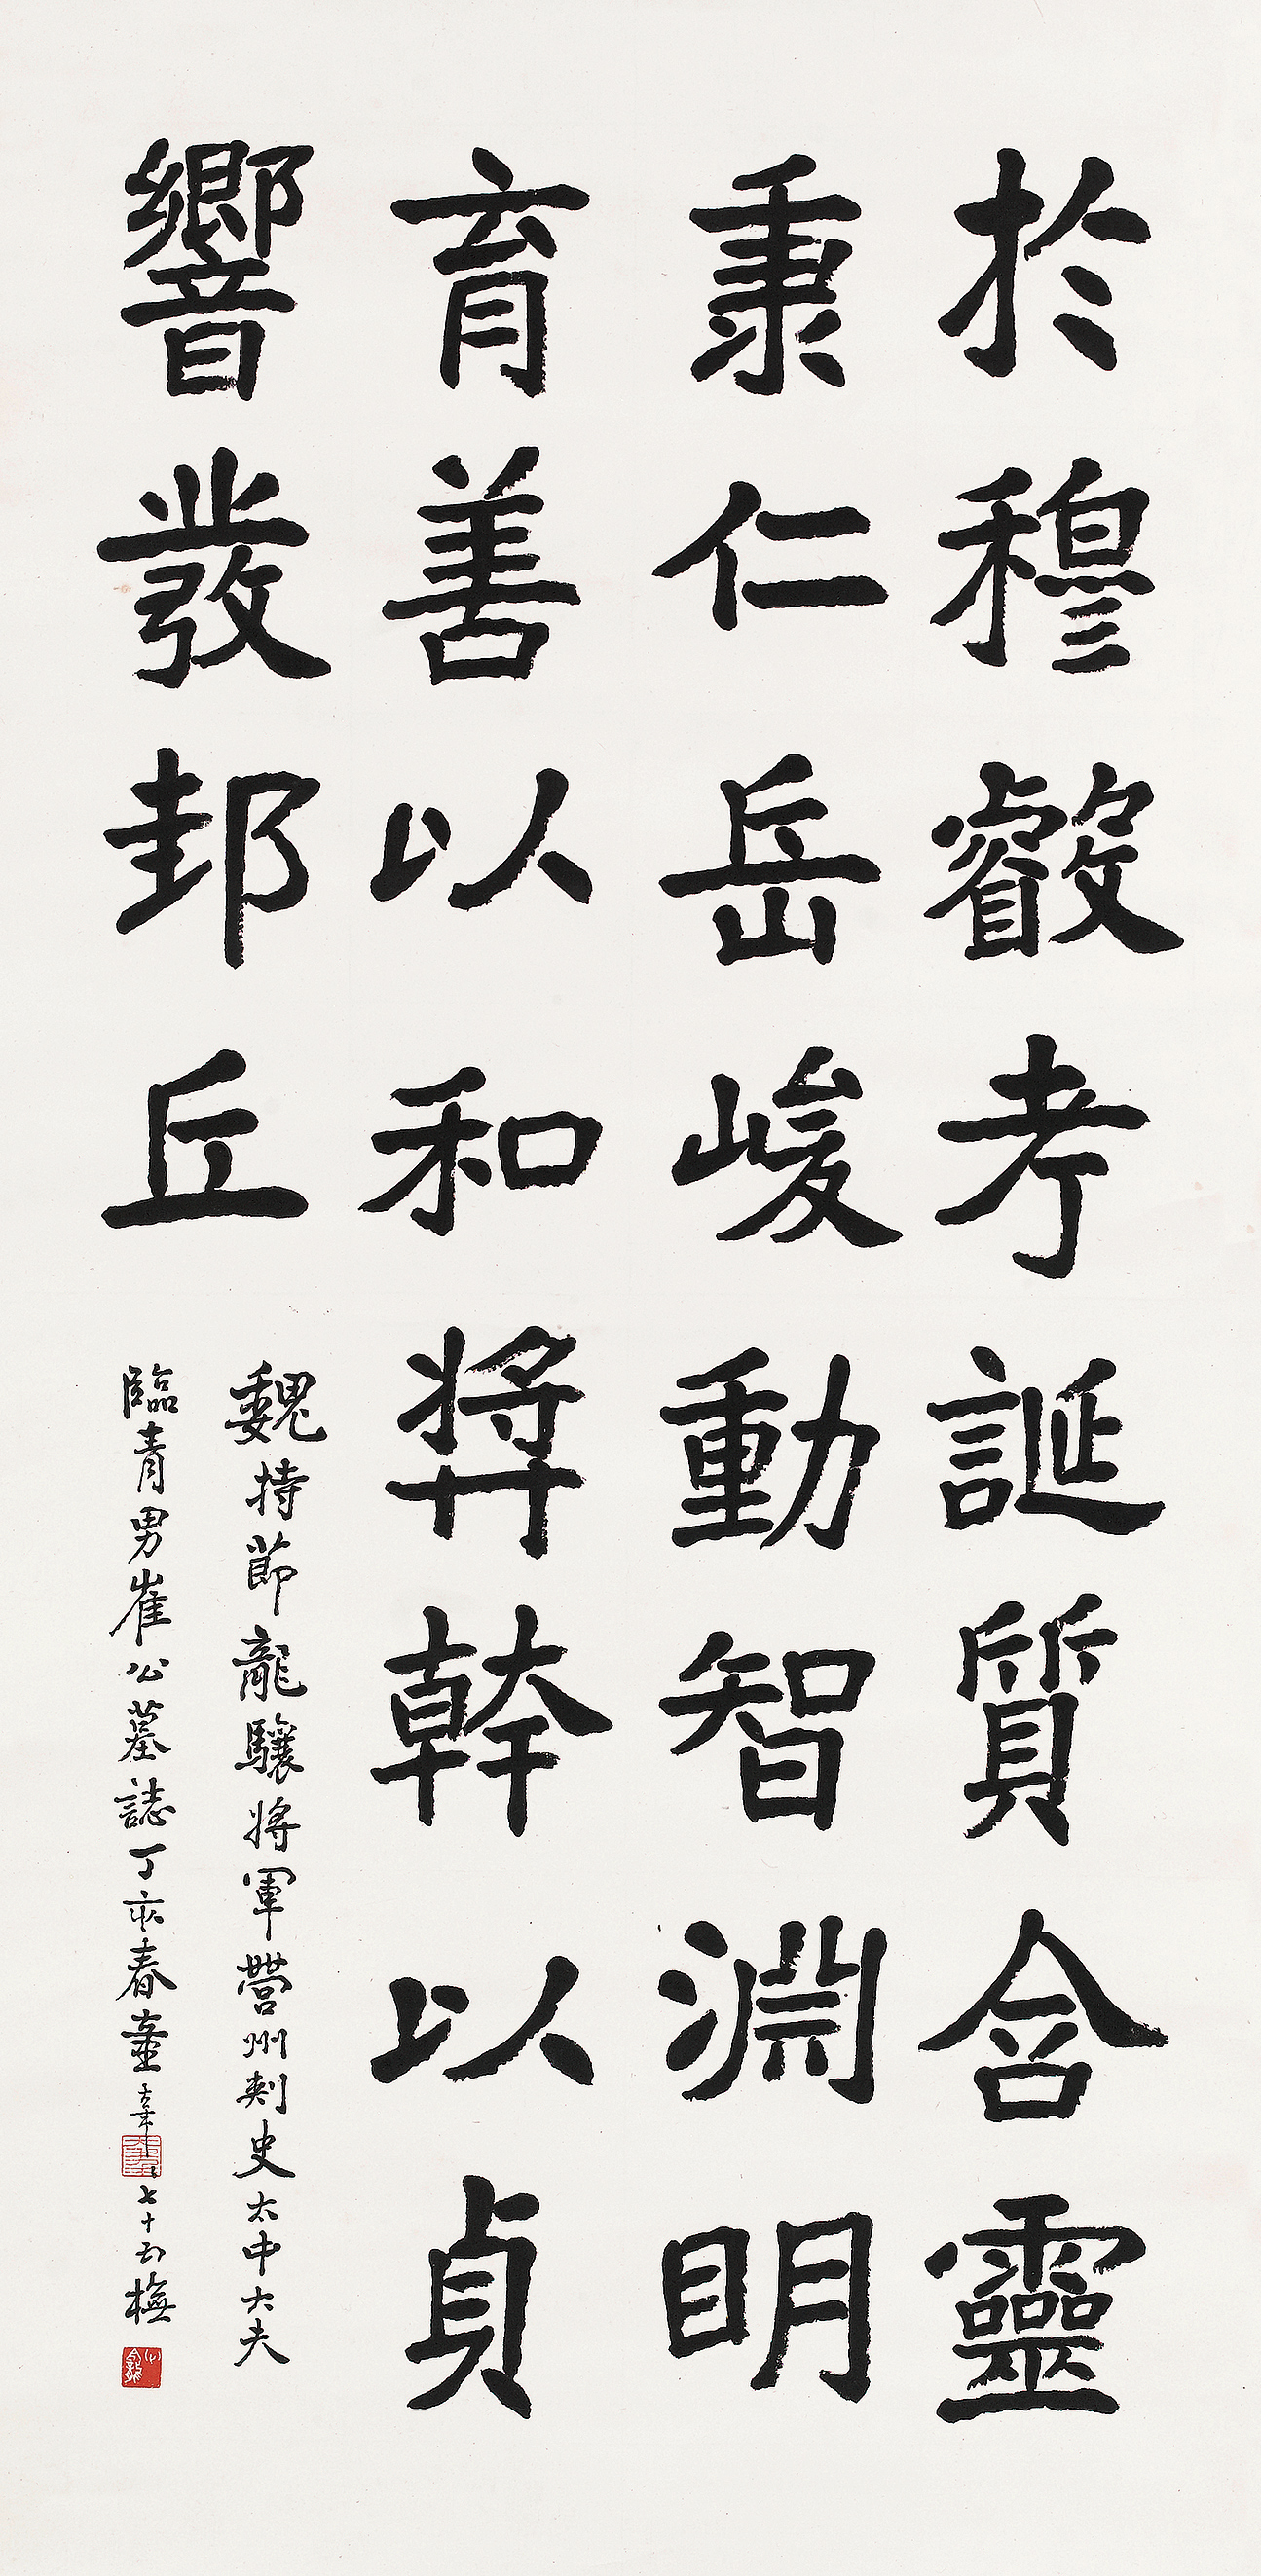 於穆叡考誕質含靈
秉仁岳峻動智淵明
育善以和獎幹以貞
響發邦丘
魏持節龍驤將軍營州刺史太中大夫
臨青男崔公墓誌丁亥春童壽七十五橅